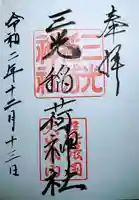 奉拝
三光稲荷神社
三光稲荷
令和二年十二月十三日